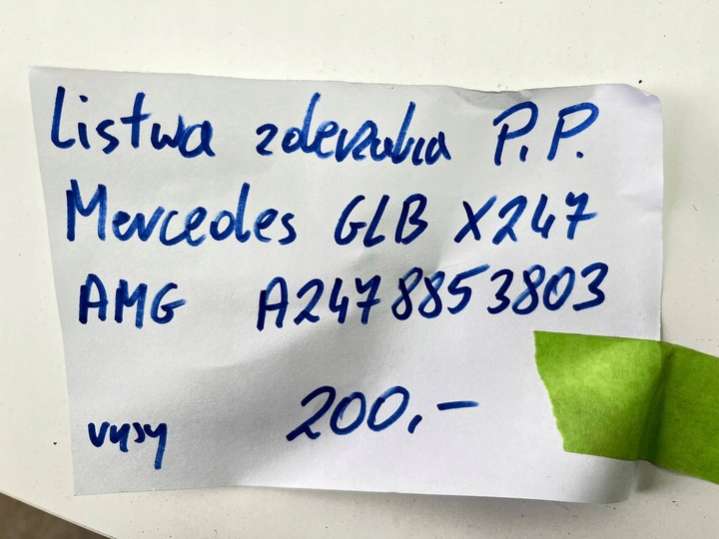 Listwa zderzaka P.P.
Mercedes GLB X247
AMG A2478853803
200,-
rysy